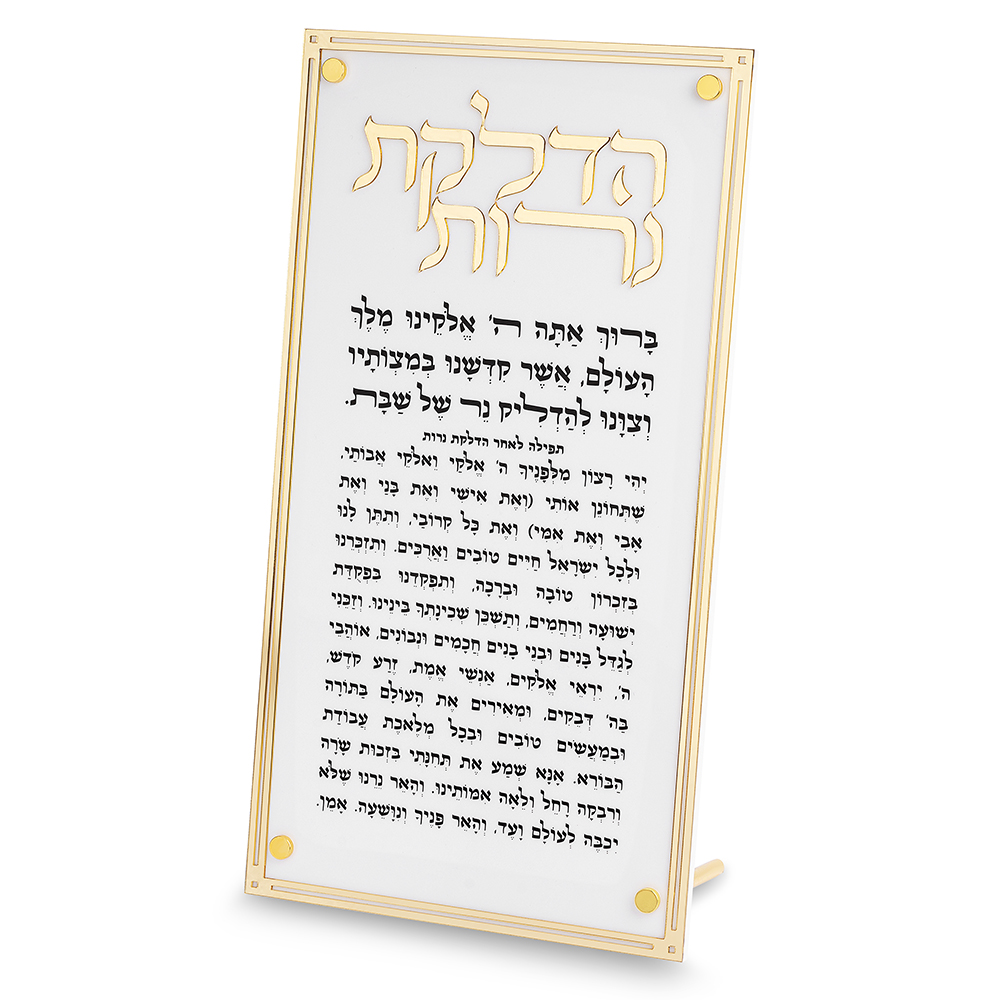 הדלקת
נרות
בָּרוּךְ אַתָּה ה' אֱלֹקֵינוּ מֶלֶךְ
הָעוֹלָם, אֲשֶׁר קִדְּשָׁנוּ בְּמִצְוֹתָיו
וְצִוָּנוּ לְהַדְלִיק נֵר שֶׁל שַׁבָּת.
תפילה לאחר הדלקת נרות
יְהִי רָצוֹן מִלְּפָנֶיךָ ה' אֱלֹקַי וֵאלֹקֵי אֲבוֹתַי,
שֶׁתְּחוֹנֵן אוֹתִי (וְאֶת אִישִׁי וְאֶת בָּנַי וְאֶת
אָבִי וְאֶת אִמִּי) וְאֶת כָּל קְרוֹבַי, וְתִתֵּן לָנוּ
וּלְכָל יִשְׂרָאֵל חַיִּים טוֹבִים וַאֲרֻכִּים. וְתִזְכְּרֵנוּ
בְּזִכְרוֹן טוֹבָה וּבְרָכָה, וְתִפְקְדֵנוּ בִּפְקֻדַּת
יְשׁוּעָה וְרַחֲמִים, וְתַשְׁכֵּן שְׁכִינָתְךָ בֵּינֵינוּ. וְזַכֵּנִי
לְגַדֵּל בָּנִים וּבְנֵי בָנִים חֲכָמִים וּנְבוֹנִים, אוֹהֲבֵי
ה', יִרְאֵי אֱלֹקִים, אַנְשֵׁי אֱמֶת, זֶרַע קֹדֶשׁ,
בַּה' דְּבֵקִים, וּמְאִירִים אֶת הָעוֹלָם בַּתּוֹרָה
וּבְמַעֲשִׂים טוֹבִים וּבְכָל מְלֶאכֶת עֲבוֹדַת
הַבּוֹרֵא. אָנָּא שְׁמַע אֶת תְּחִנָּתִי בִּזְכוּת שָׂרָה
וְרִבְקָה רָחֵל וְלֵאָה אִמּוֹתֵינוּ. וְהָאֵר נֵרֵנוּ שֶׁלֹּא
יִכְבֶּה לְעוֹלָם וָעֶד, וְהָאֵר פָּנֶיךָ וְנִוָּשֵׁעָה. אָמֵן.